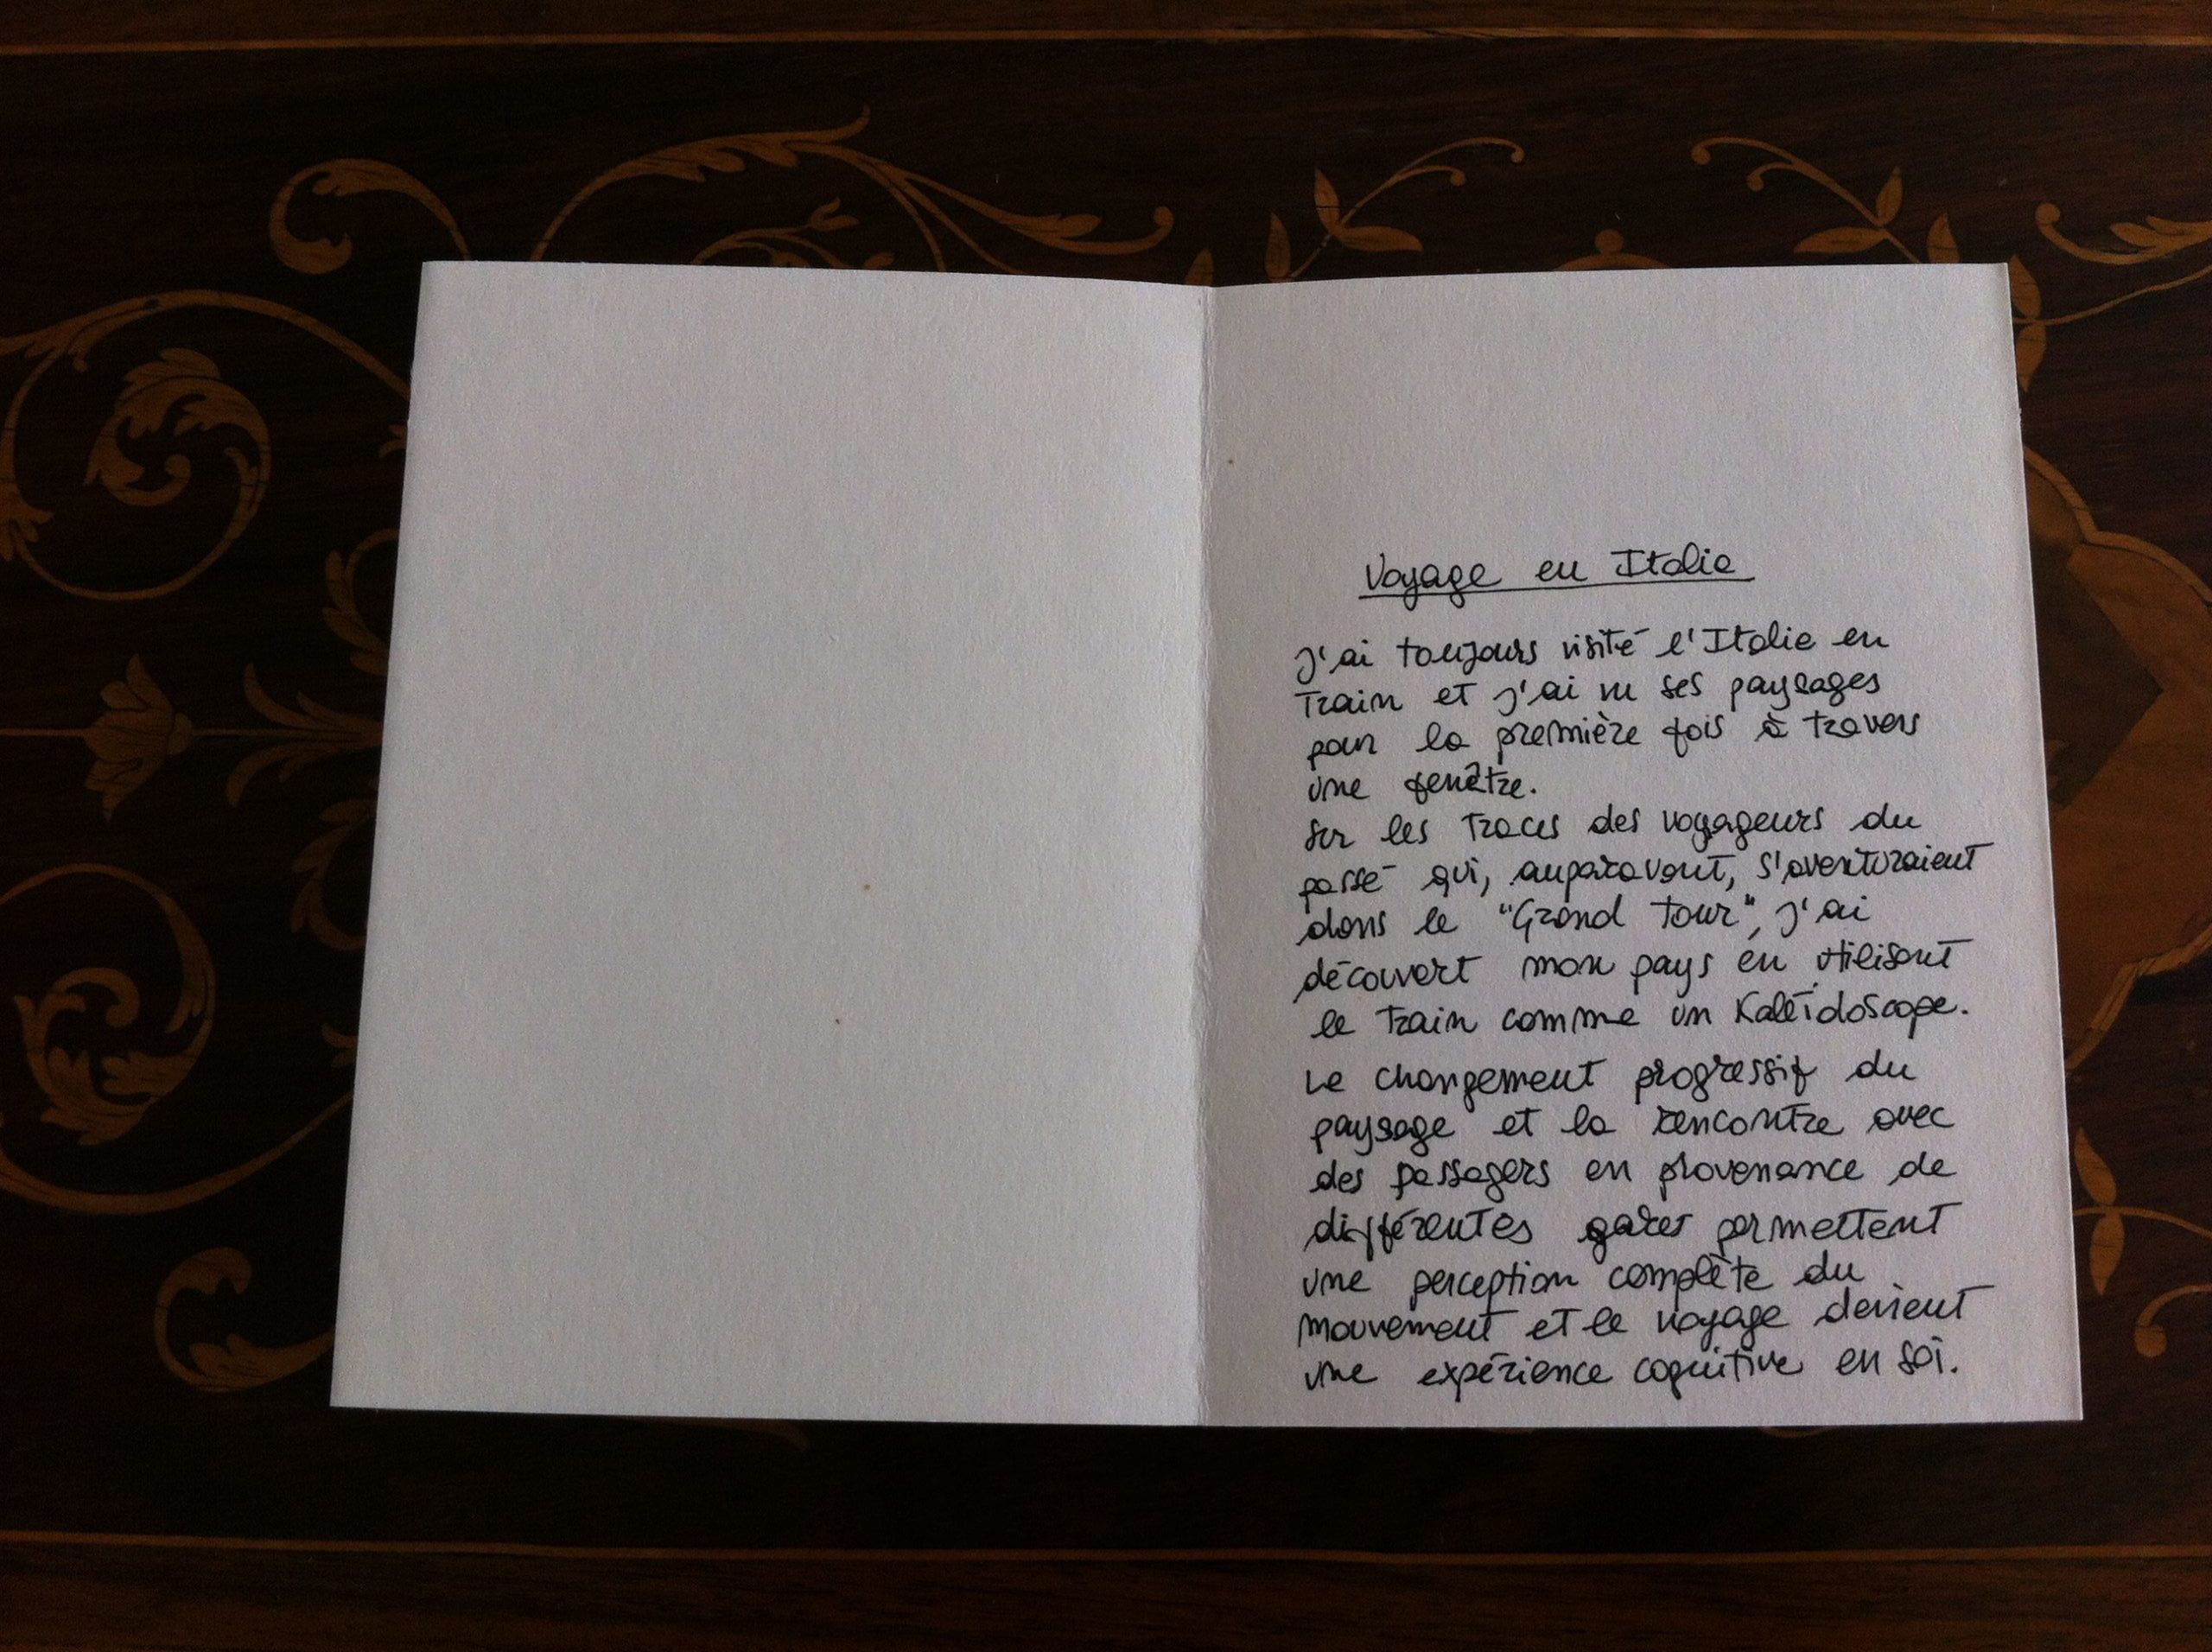 Voyage en Italie
J'ai toujours visité l'Italie en
train et j'ai vu ses paysages
pour la première fois à travers
une fenêtre.
Sur les traces des voyageurs du
passé qui, auparavant, s'aventuraient
dans le "Grand Tour", j'ai
découvert mon pays en utilisant
le train comme un Kaléidoscope.
Le changement progressif du
paysage et la rencontre avec
des passagers en provenance de
différentes gares permettent
une perception complète du
mouvement et le voyage devient
une expérience cognitive en soi.